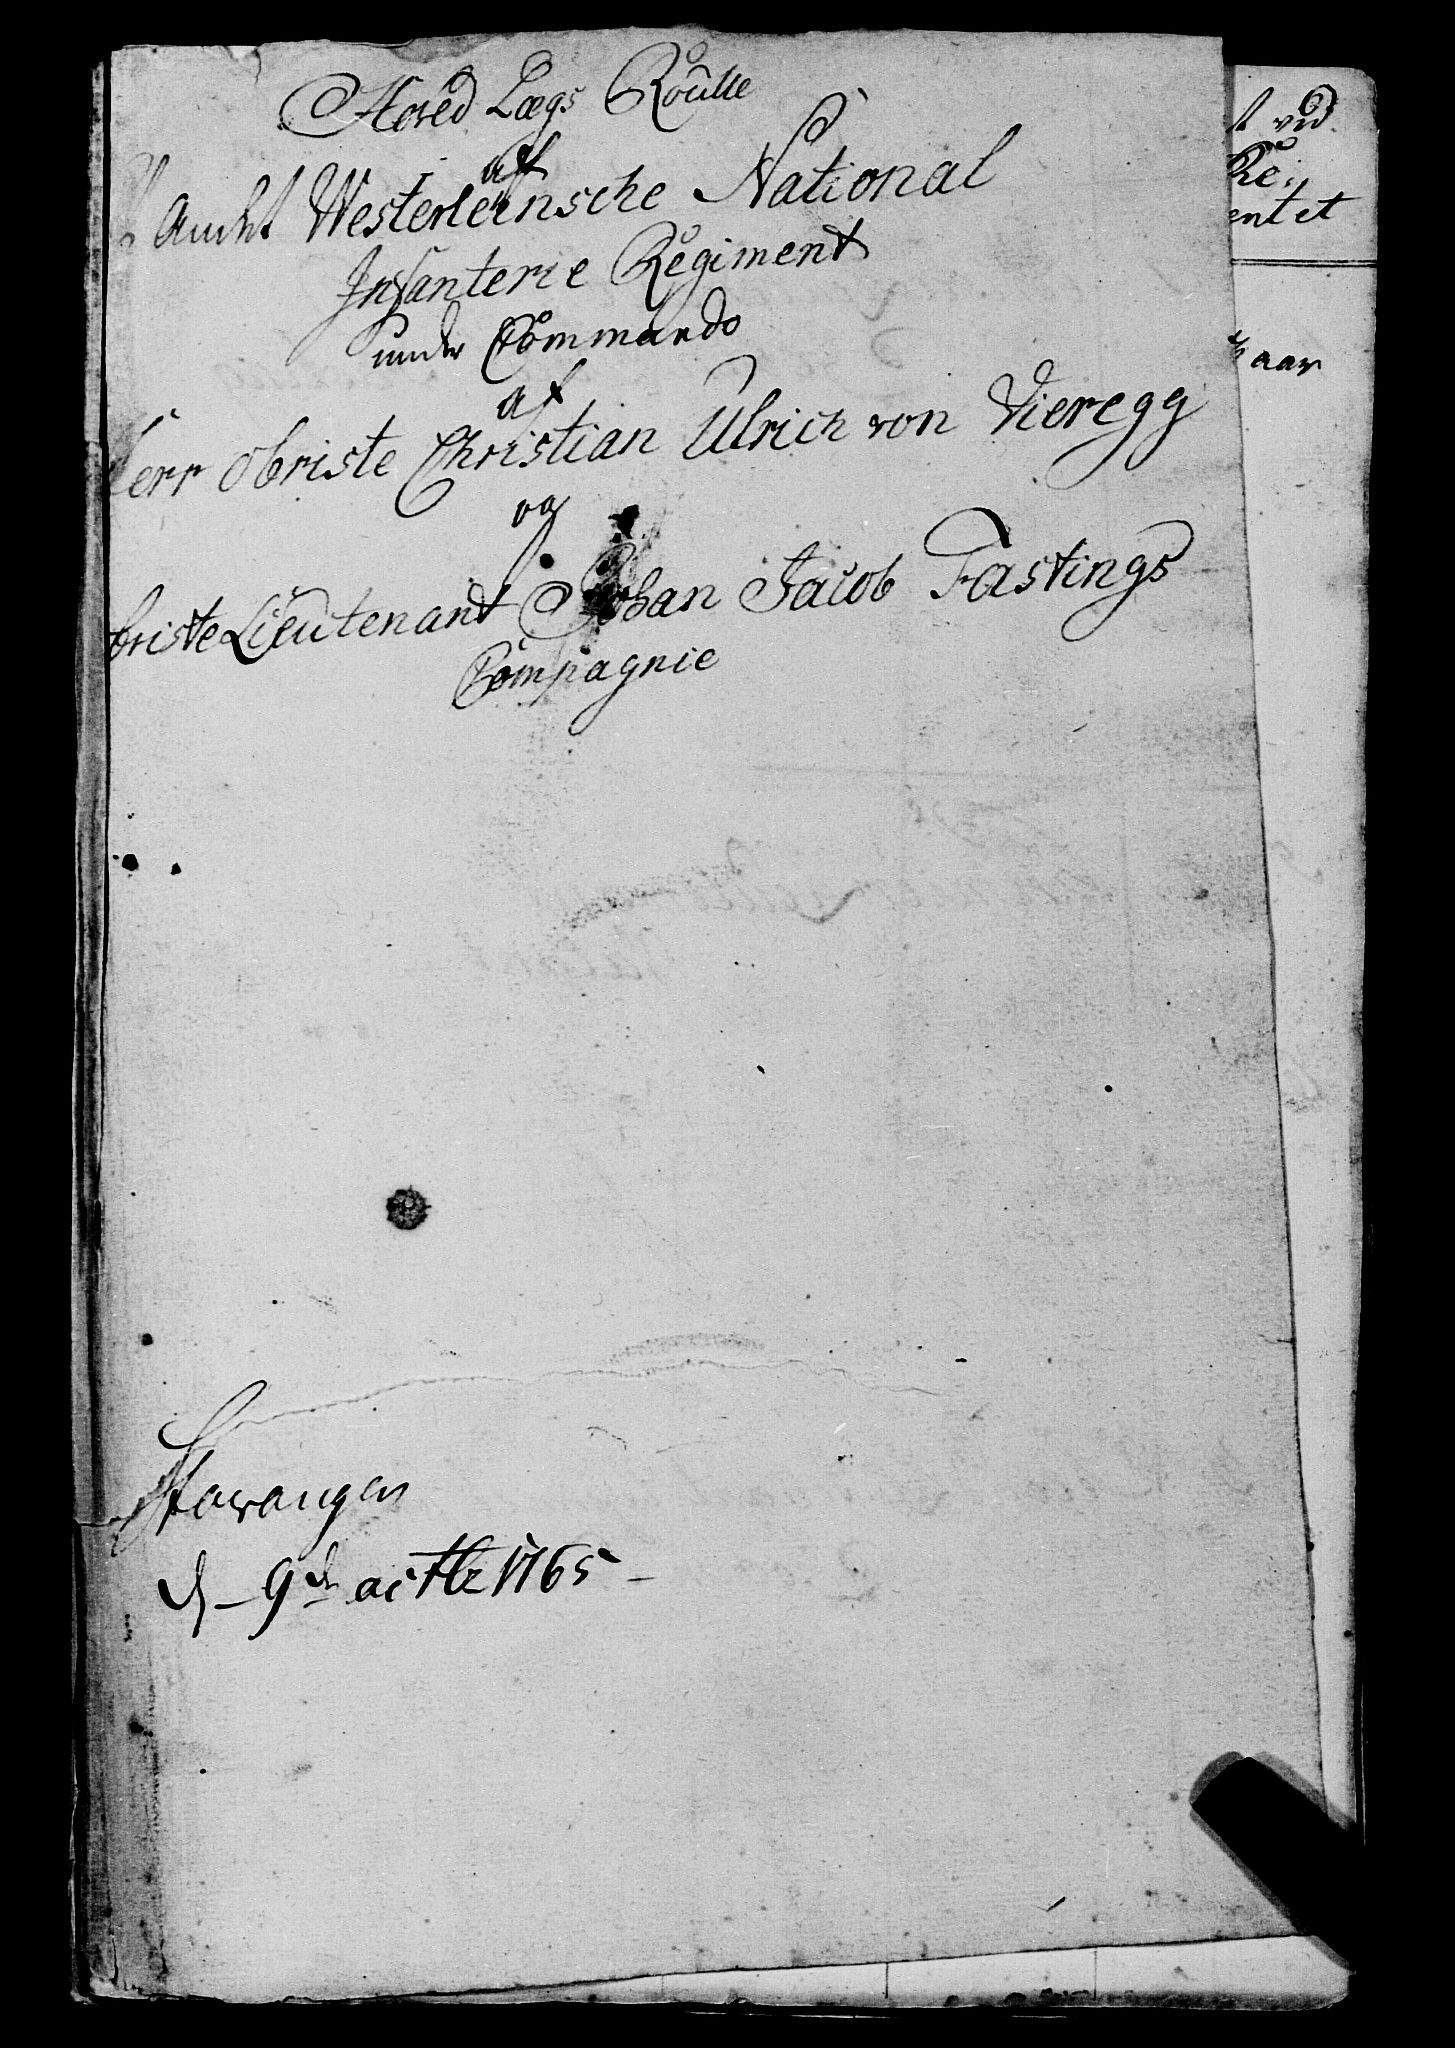 Hoved Lægs Roulle
af
Westerleinsche National
Infanterie Regiment
under Commando
af
Herr Obriste Christian Ulrich von Vieregg
og
briste Lieutenant Johan Jacob Fastings
Compagnie
Stavanger
d. 9de octbr 1765
ved
Re:
entet
aar